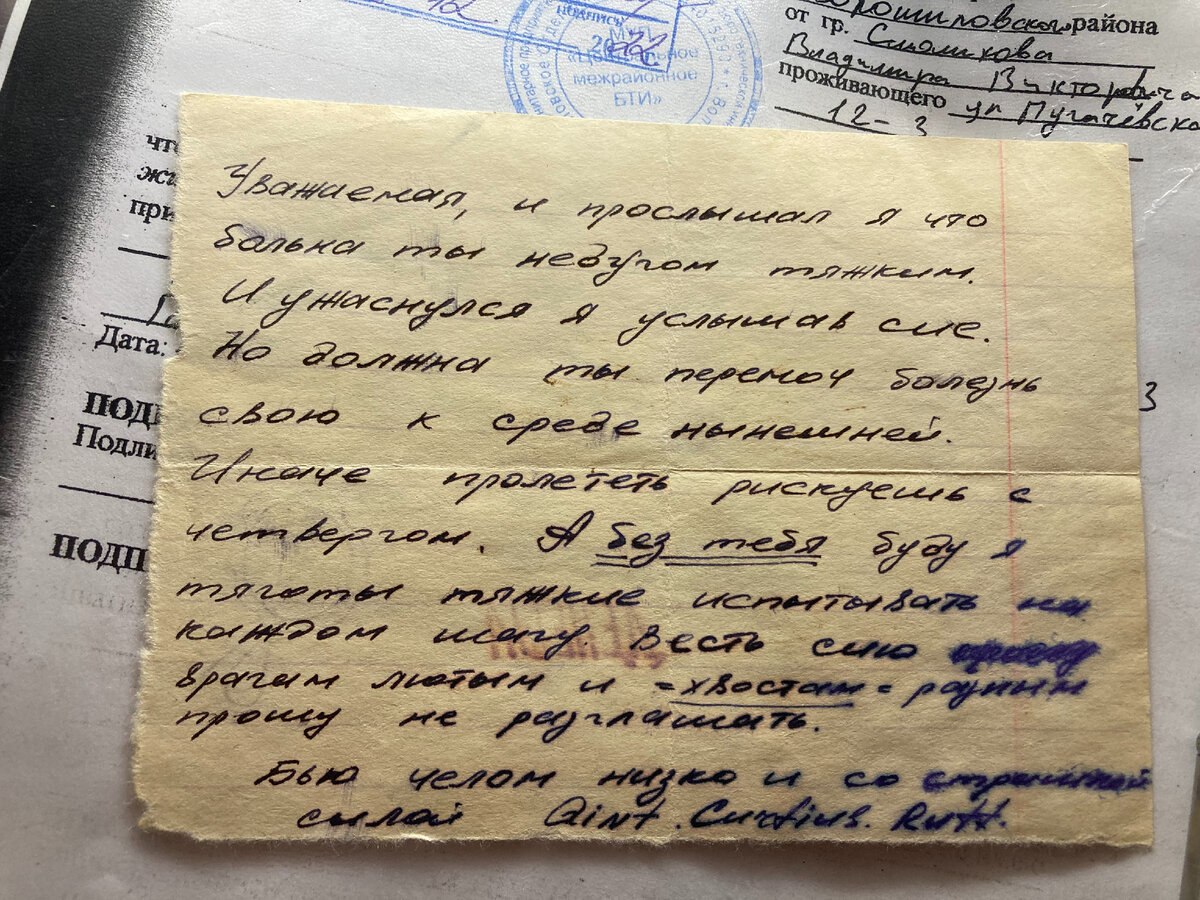 подпись
2022
«Центральное
межрайонное
БТИ»
района
от гр. Смоликова
Владимира Викторовича
проживающего ул Пугачёвска
12-3
что
при
Дата:
ПОДП
Подли
ПОДП
3
Уважаемая, и прослышал я что
больна ты недугом тяжким.
И ужаснулся я услышав сие.
Но должна ты перемоч болезнь
свою к среде нынешней.
Иначе пролететь рискуешь с
четвергом. А без тебя буду я
тяготы тяжкие испытывать на
каждом шагу Весть сию
врагам лютым и =хвостам= разным
прошу не разглашать.
Бью челом низко и со страшной
силой Qint. Curtius. Ruff.